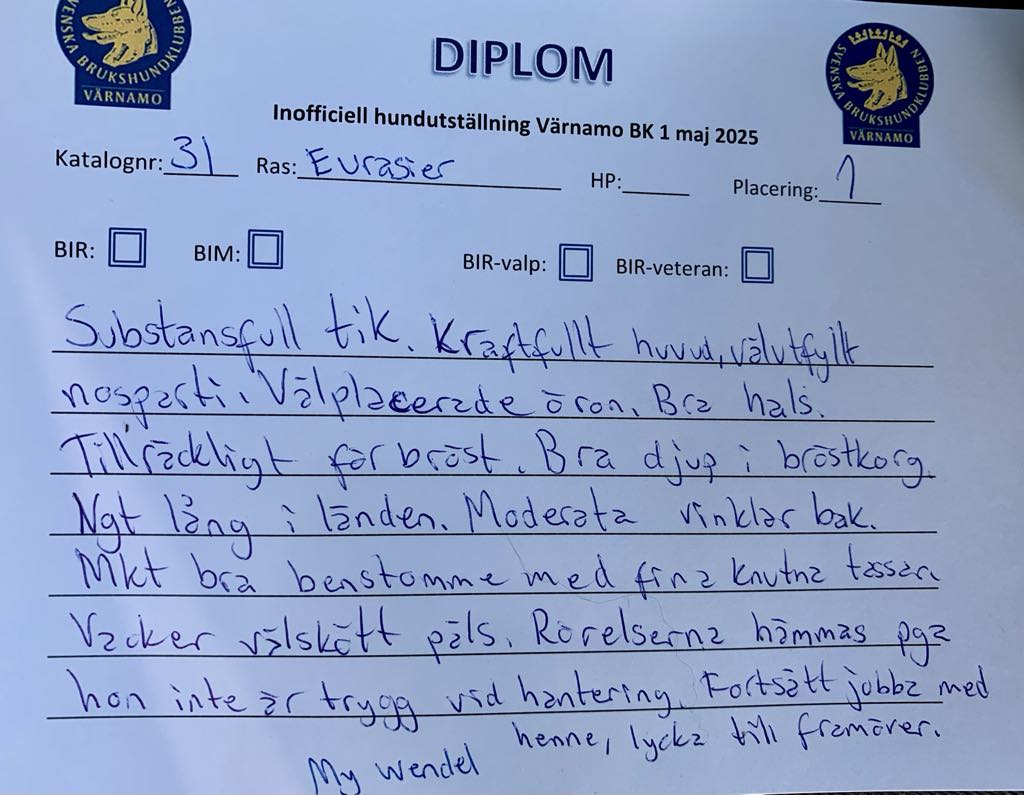 SVENSKA BRUKSHUNDKLUBBEN
VÄRNAMO
DIPLOM
SVENSKA BRUKSHUNDKLUBBEN
VÄRNAMO
Inofficiell hundutställning Värnamo BK 1 maj 2025
Katalognr: 31 Ras: Eurasier HP: Placering: 1
BIR: BIM: BIR-valp: BIR-veteran:
Substansfull tik. Kraftfullt huvud, välutfyllt
nosparti. Välplacerade öron. Bra hals.
Tillräckligt förbröst. Bra djup i bröstkorg.
Ngt lång i länden. Moderata vinklar bak.
Mkt bra benstomme med fina knutna tassar.
Vacker välskött päls. Rörelserna hämmas pga
hon inte är trygg vid hantering. Fortsätt jobba med
henne, lycka till framöver.
My Wendel